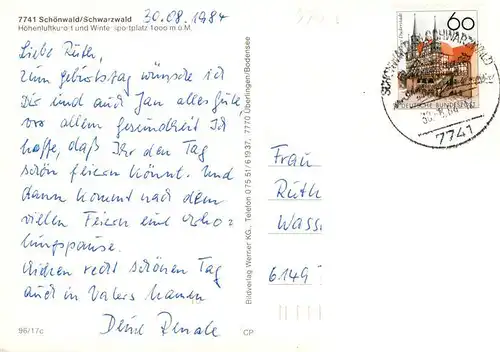 7741 Schönwald/Schwarzwald
30.08.1984
Höhenluftkurort und Wintersportplatz 1000 m ü.M.
Liebe Ruth,
zum Geburtstag wünsche ich
Dir und auch Jan alles Gute
vor allem Gesundheit. Ich
hoffe, daß Ihr den Tag
schön feiern könnt. Und
dann kommt nach dem
vielen Feiern eine Erho-
lungspause.
recht schönen Tag
auch in Vaters Namen
Deine Renate
96/17c
CP
Bildverlag Werner KG., Telefon 0 75 51/6 19 37, 7770 Überlingen/Bodensee
60
DEUTSCHE BUNDESPOST
SCHÖNWALD SCHWARZWALD
7741
Frau
Ruth
Wass
6149